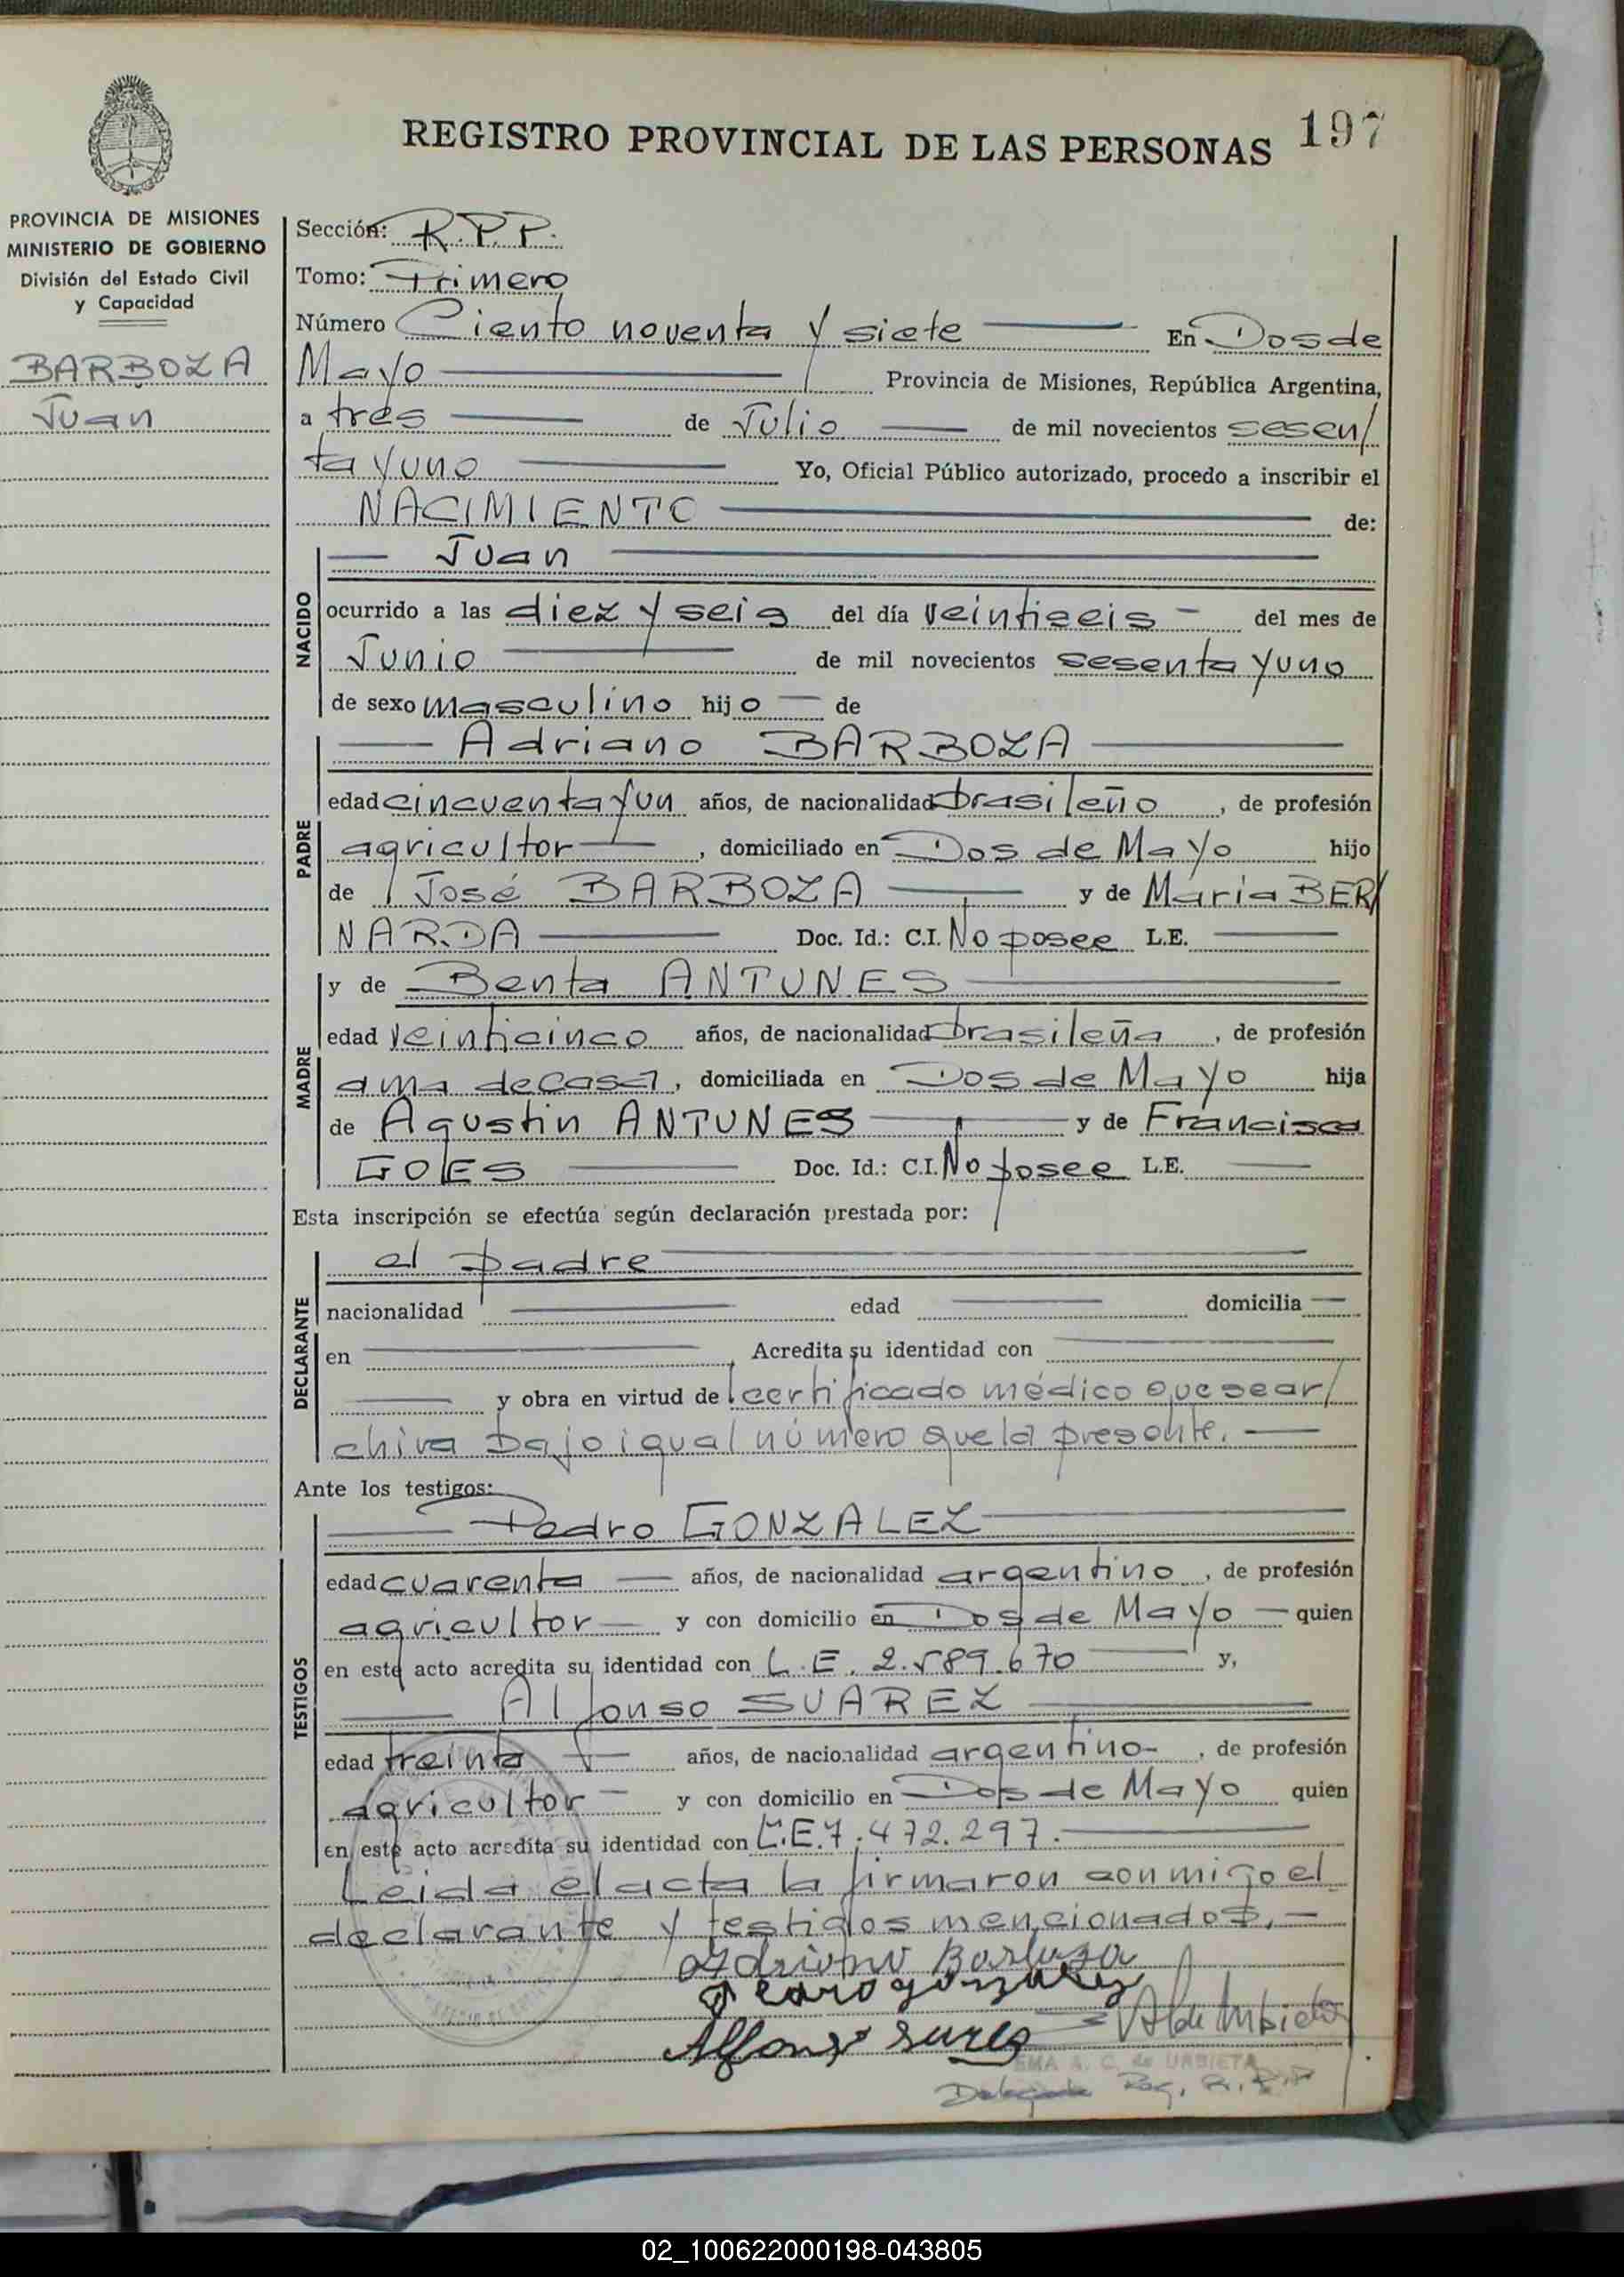 REGISTRO PROVINCIAL DE LAS PERSONAS 197
PROVINCIA DE MISIONES
MINISTERIO DE GOBIERNO
División del Estado Civil
y Capacidad
BARBOZA
Juan
Sección: R.P.P.
Tomo: Primero
Número Ciento noventa y siete En Dos de
Mayo Provincia de Misiones, República Argentina,
a tres de Julio de mil novecientos sesen/
ta y uno Yo, Oficial Público autorizado, procedo a inscribir el
NACIMIENTO de:
NACIDO
Juan
ocurrido a las diez y seis del día veintiseis - del mes de
Junio de mil novecientos sesenta y uno
de sexo masculino hijo de
PADRE
Adriano BARBOZA
edad cincuenta y un años, de nacionalidad brasileño, de profesión
agricultor, domiciliado en Dos de Mayo hijo
de José BARBOZA y de María BER/
NARDA Doc. Id.: C.I. No posee L.E.
MADRE
y de Benta ANTUNES
edad veinticinco años, de nacionalidad brasileña, de profesión
ama de casa, domiciliada en Dos de Mayo hija
de Agustin ANTUNES y de Francisca
GOES Doc. Id.: C.I. No posee L.E.
Esta inscripción se efectúa según declaración prestada por:
DECLARANTE
el padre
nacionalidad edad domicilia
en Acredita su identidad con
y obra en virtud de certificado médico que se ar/
chiva bajo igual número que la presente.
Ante los testigos:
TESTIGOS
Pedro GONZALEZ
edad cuarenta años, de nacionalidad argentino, de profesión
agricultor y con domicilio en Dos de Mayo quien
en este acto acredita su identidad con L.E. 2.589.670 y,
Alfonso SUAREZ
edad treinta años, de nacionalidad argentino-, de profesión
agricultor y con domicilio en Dos de Mayo quien
en este acto acredita su identidad con L.E.7.472.297.
Leida el acta la firmaron conmigo el
declarante y testigos mencionados.-
Adriano Barboza
Pedro gonzalez
Alfonso Surez
EMA A. C. de URBIETA
R.P.P
02_100622000198-043805